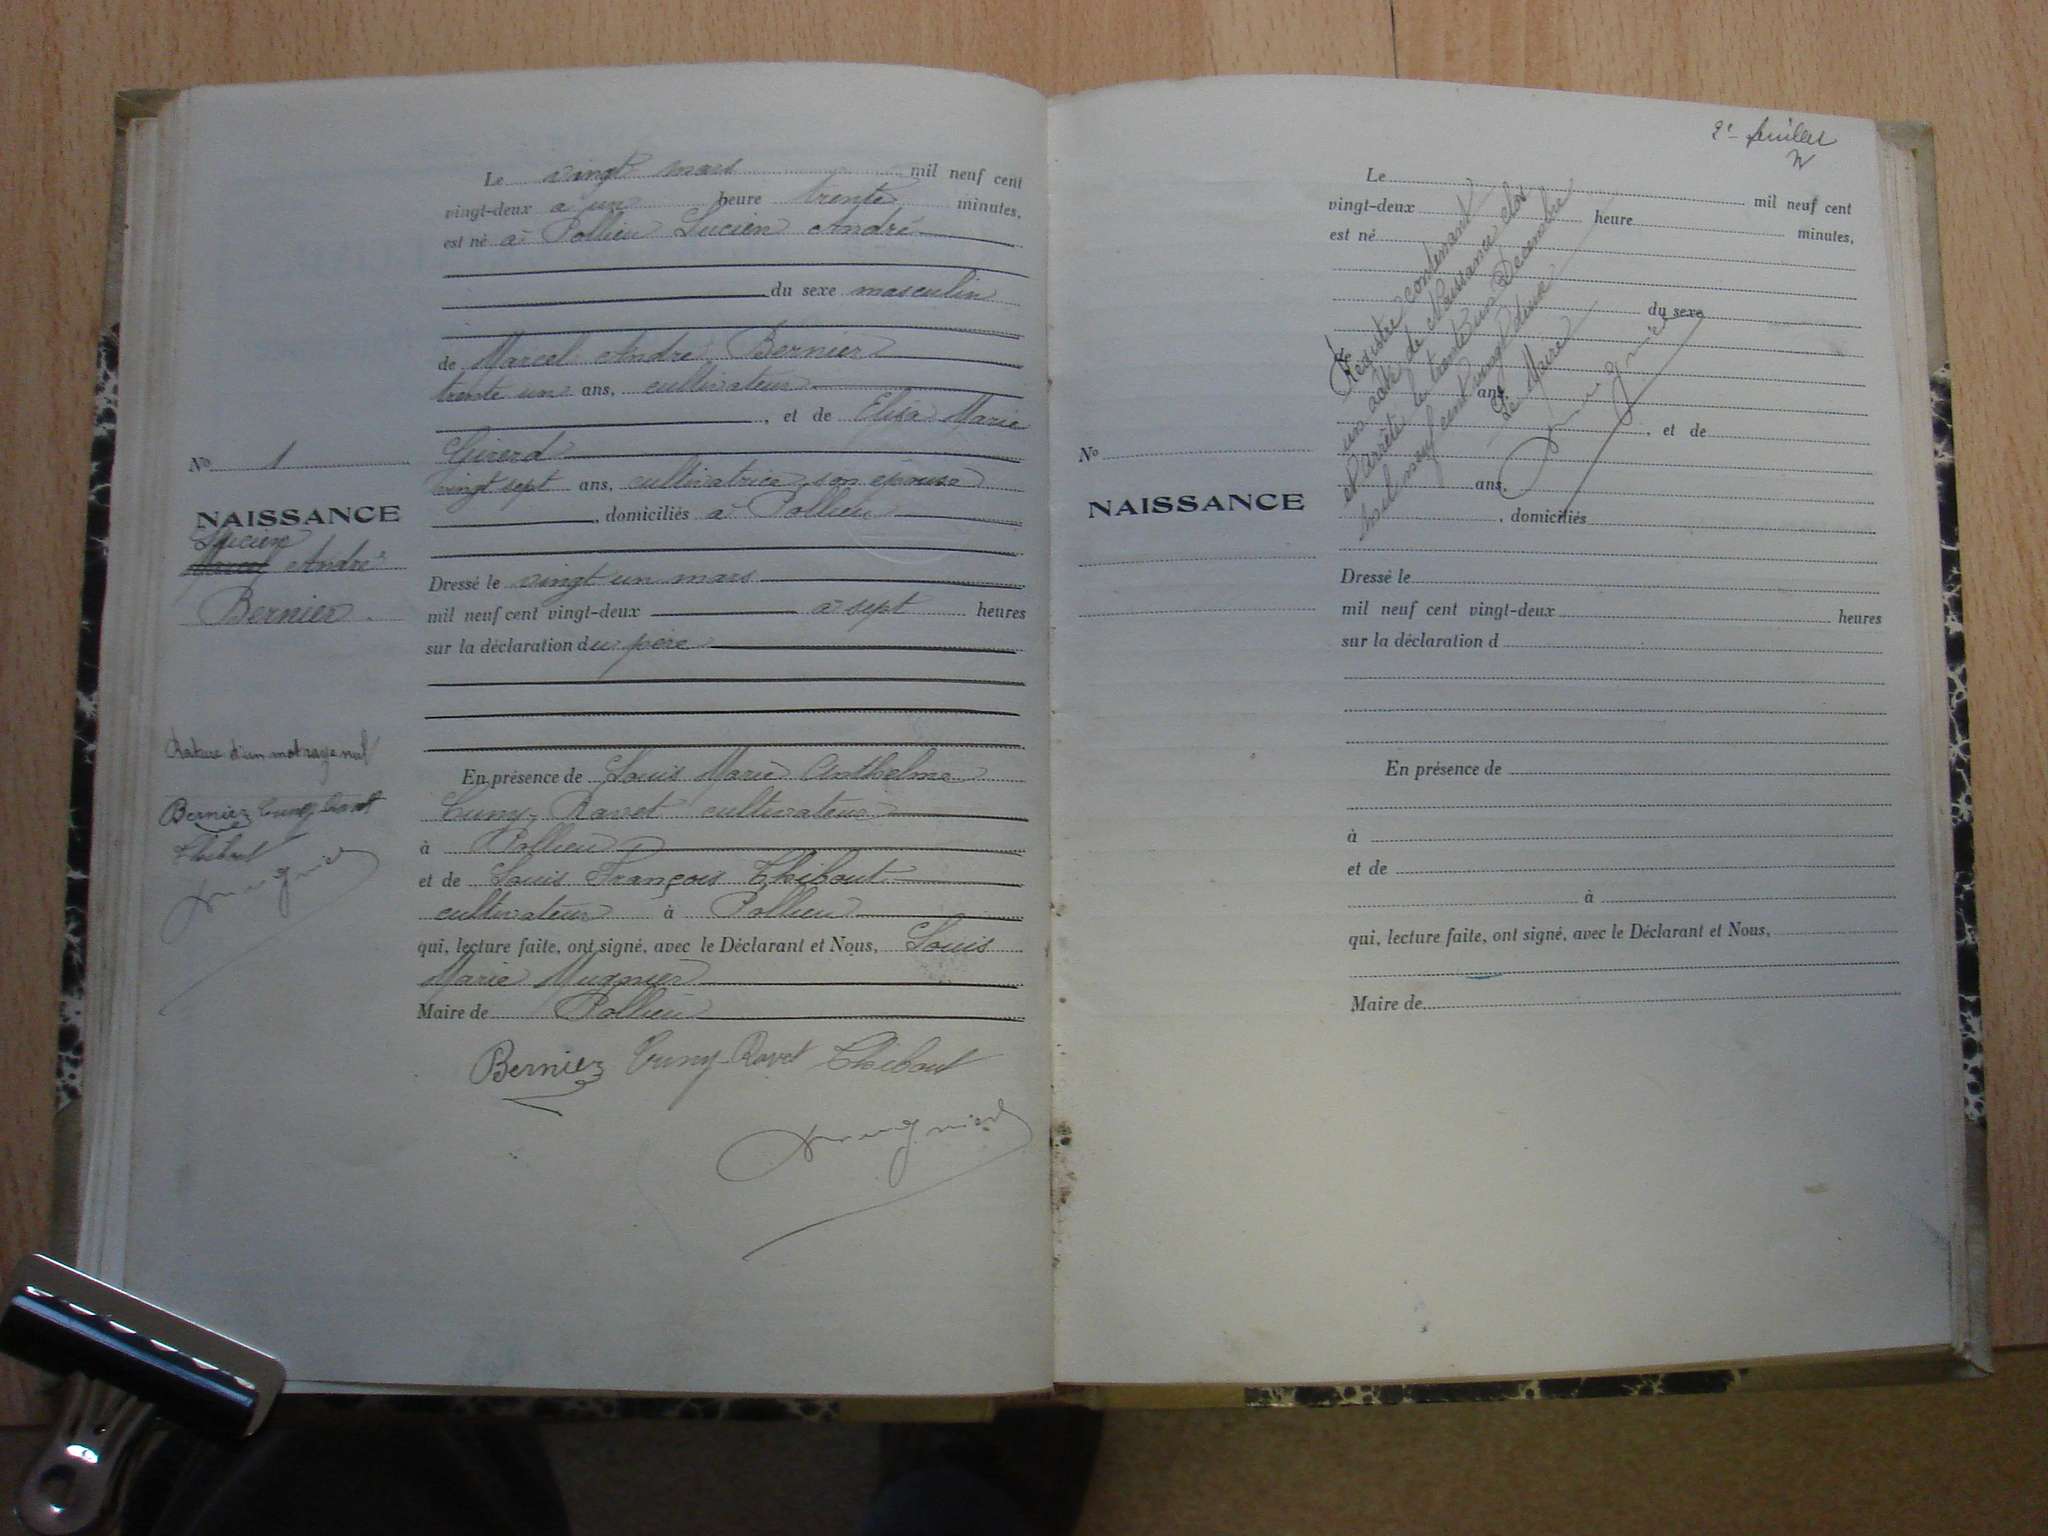 Le vingt mars mil neuf cent
vingt-deux à un heure trente minutes,
est né à Pollieu Lucien André
du sexe masculin
de Marcel André Bernier
trente un ans, cultivateur
, et de Eliza Marie
Girerd
vingt sept ans, cultivatrice son épouse
, domiciliés à Pollieu
No 1
NAISSANCE
Lucien
Marcel André
Bernier
Dressé le vingt un mars
mil neuf cent vingt-deux à sept heures
sur la déclaration du père
Rature d'un mot rayé nul
Bernier Cuny-Ravet
Thibout
Mugnier
En présence de Louis Marie Anthelme
Cuny-Ravet cultivateur
à Pollieu
et de Louis François Thibout
cultivateur à Pollieu
qui, lecture faite, ont signé, avec le Déclarant et Nous, Louis
Marie Mugnier
Maire de Pollieu
Bernier Cuny-Ravet Thibout
Mugnier
Le mil neuf cent
vingt-deux heure minutes,
est né
du sexe
ans,
, et de
No
NAISSANCE
ans,
, domiciliés
Registre contenant
un acte de Naissance clos
et arrêté le trente un Décembre
mil neuf cent vingt deux
Le Maire
Mugnier
Dressé le
mil neuf cent vingt-deux heures
sur la déclaration d
En présence de
à
et de
à
qui, lecture faite, ont signé, avec le Déclarant et Nous,
Maire de